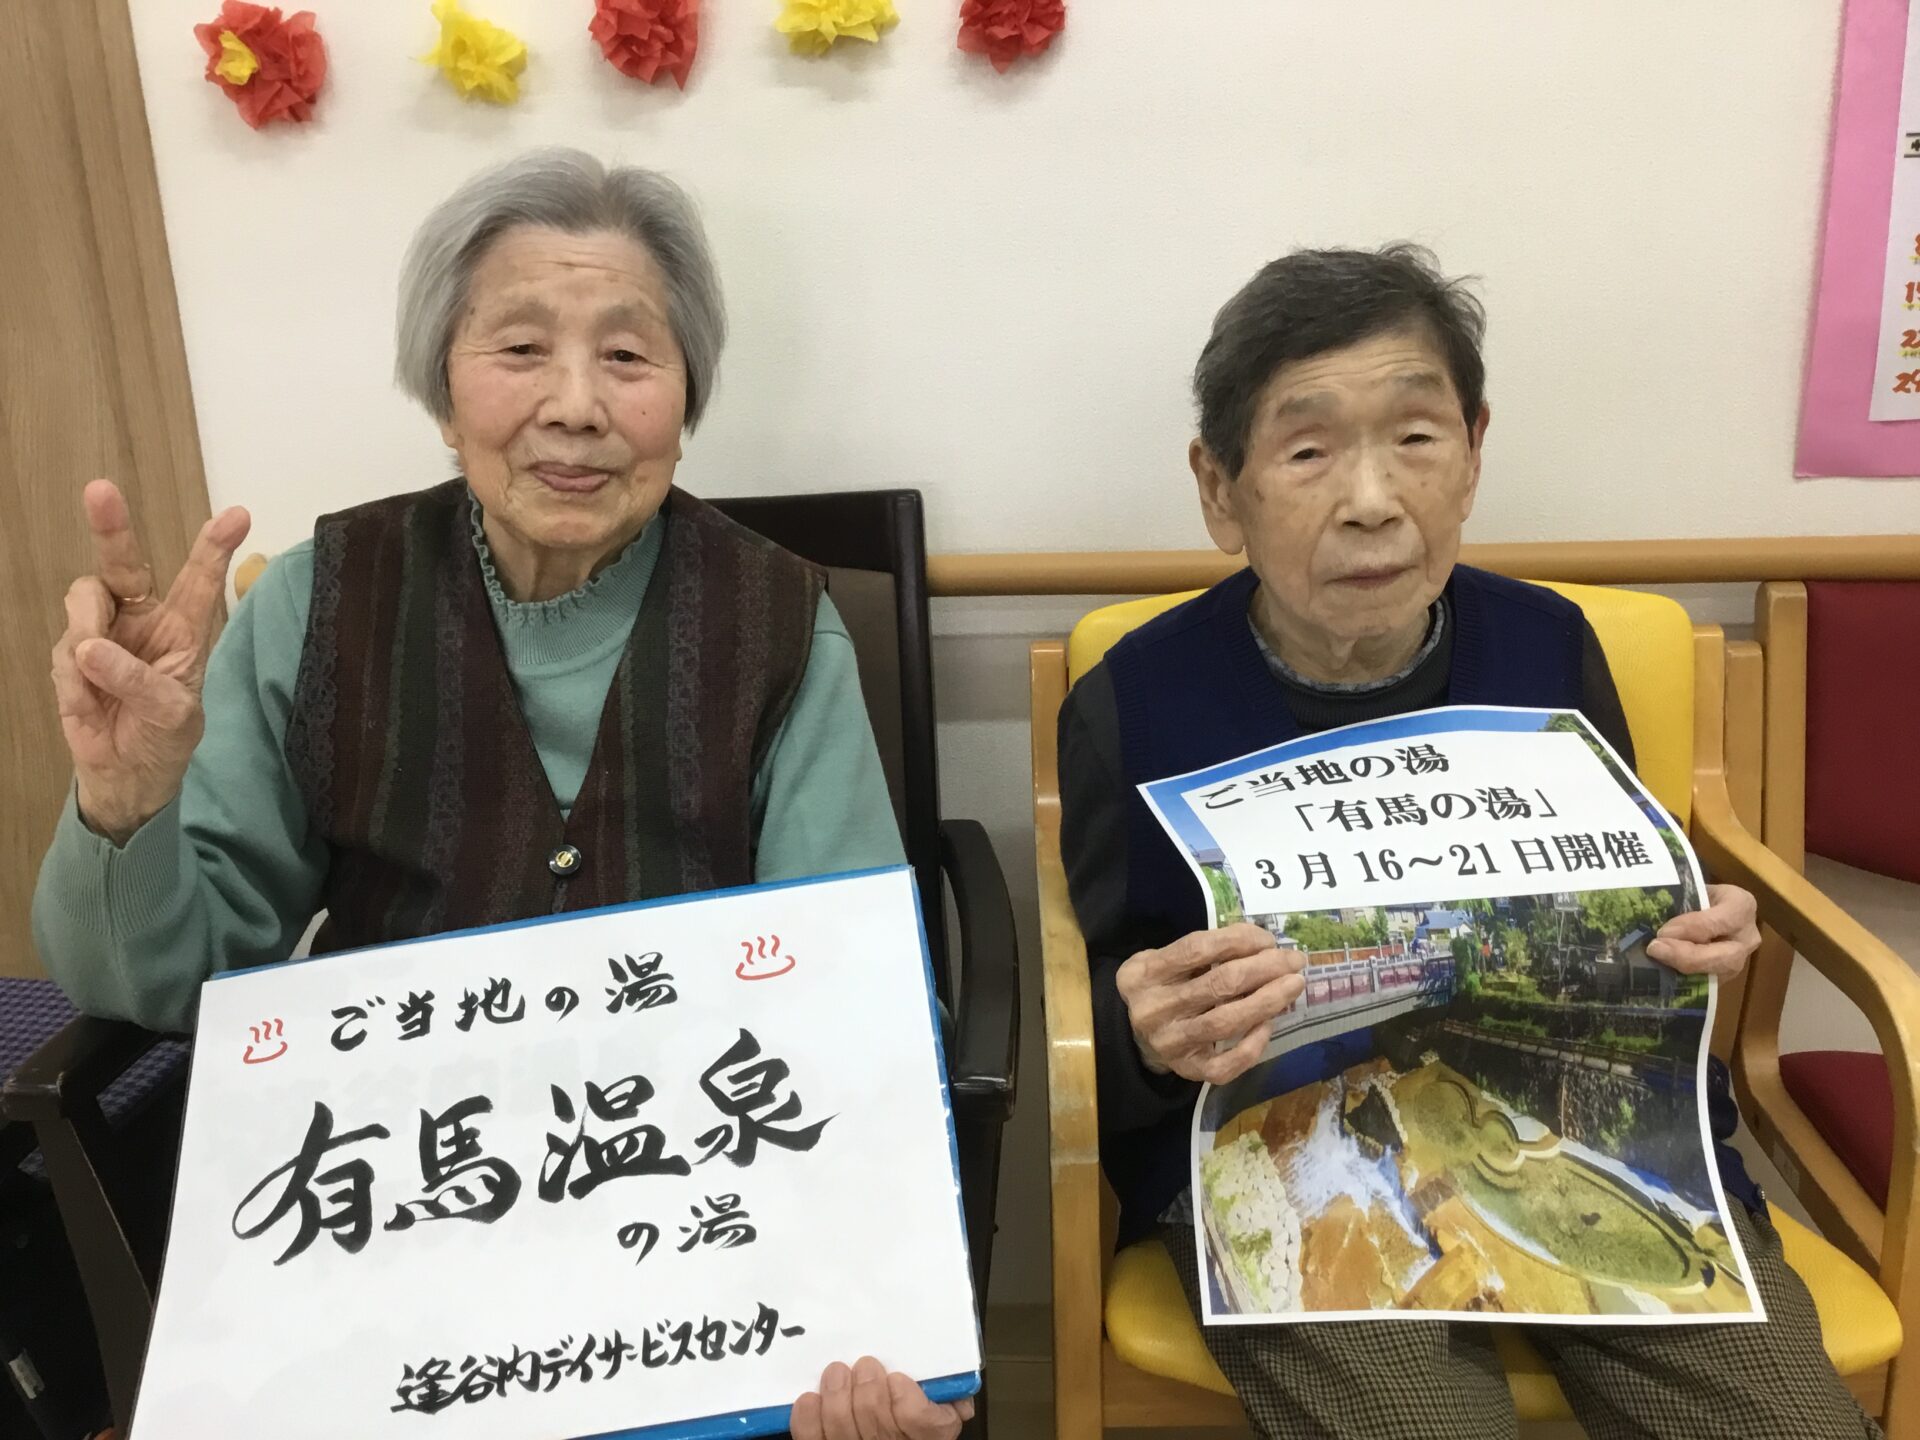 ご当地の湯
有馬温泉
の湯
逢谷内デイサービスセンター
ご当地の湯
「有馬の湯」
3月16～21日開催